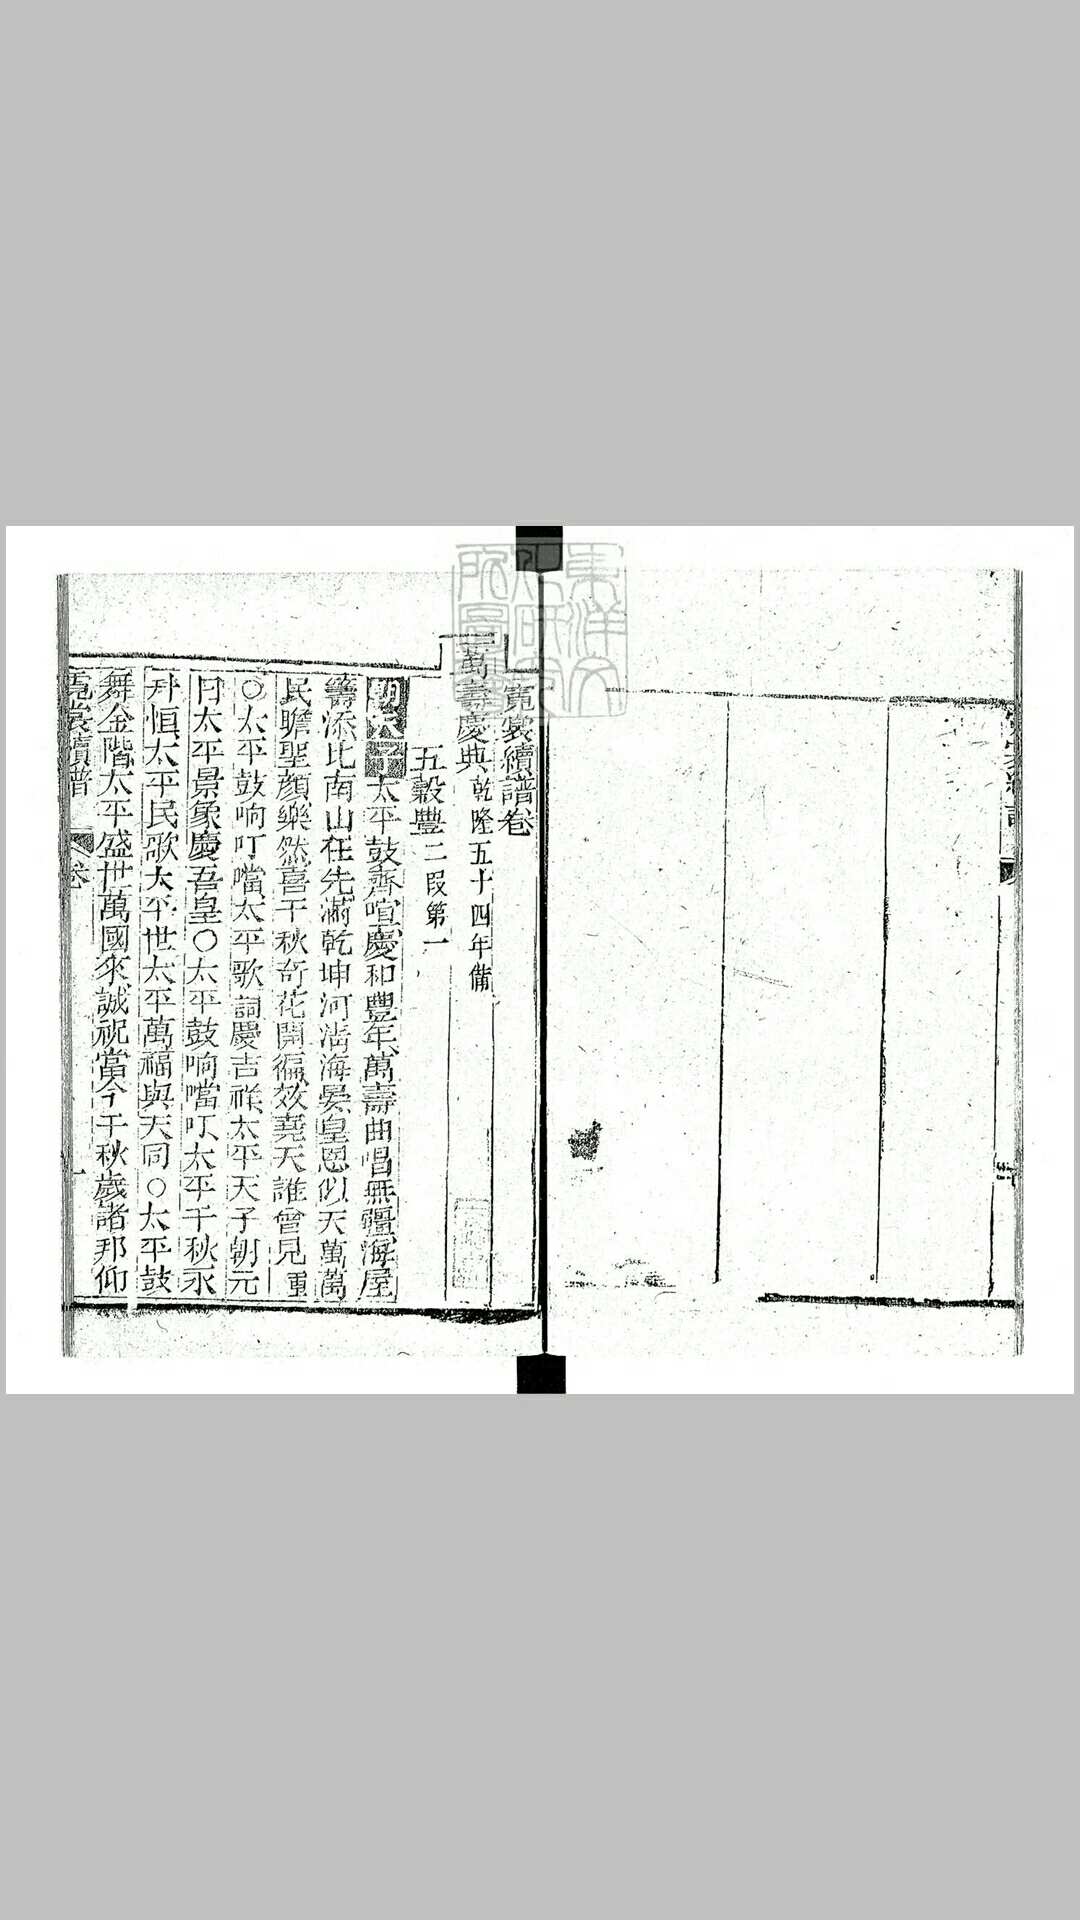 霓裳續譜卷
萬壽慶典 乾隆五十四年備
五穀豐 二段第一
太平鼓齊喧慶和豐年萬壽曲唱無疆海屋
籌添比南山在先滿乾坤河清海晏皇恩似天萬萬
民瞻聖顏樂然喜千秋奇花開徧效堯天誰曾見重
〇太平鼓响叮噹太平歌詞慶吉祥太平天子朝元
日太平景象慶吾皇〇太平鼓响噹叮太平千秋永
升恒太平民歌太平世太平萬福與天同〇太平鼓
舞金階太平盛世萬國來誠祝當今千秋歲諸邦仰
霓裳續譜 卷 一
東洋文化研究